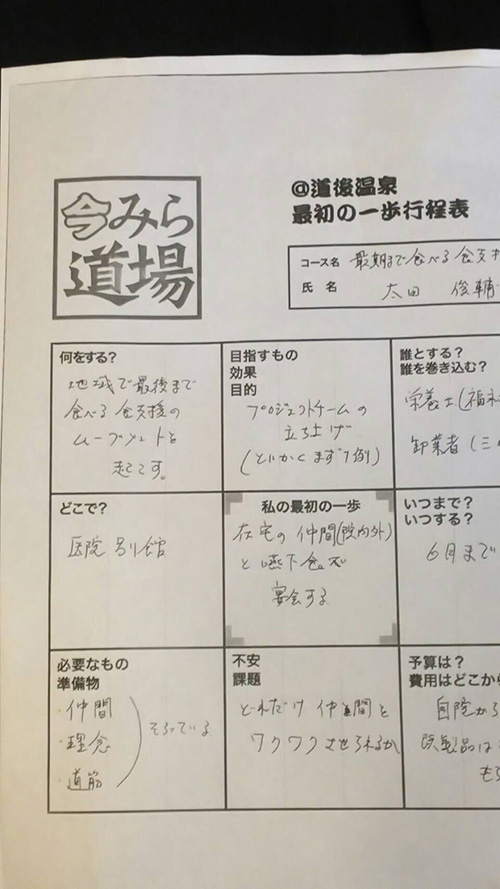 今みら
道場
@道後温泉
最初の一歩行程表
コース名 最期まで食べる食支
氏 名 太田 俊輔
何をする?
地域で最後まで
食べる食支援の
ムーブメントを
起こす。
目指すもの
効果
目的
プロジェクトチームの
立ち上げ
(とにかくまず1例)
誰とする?
誰を巻き込む?
栄養士(福
卸業者(三
どこで?
医院別館
私の最初の一歩
在宅の仲間(院内外)
と嚥下食で
宴会する
いつまで?
いつする?
6月まで
必要なもの
準備物
・仲間
・理念
・道筋
そろっている
不安
課題
どれだけ仲間を
ワクワクさせられるか
予算は?
費用はどこから
自院から
既製品は
も